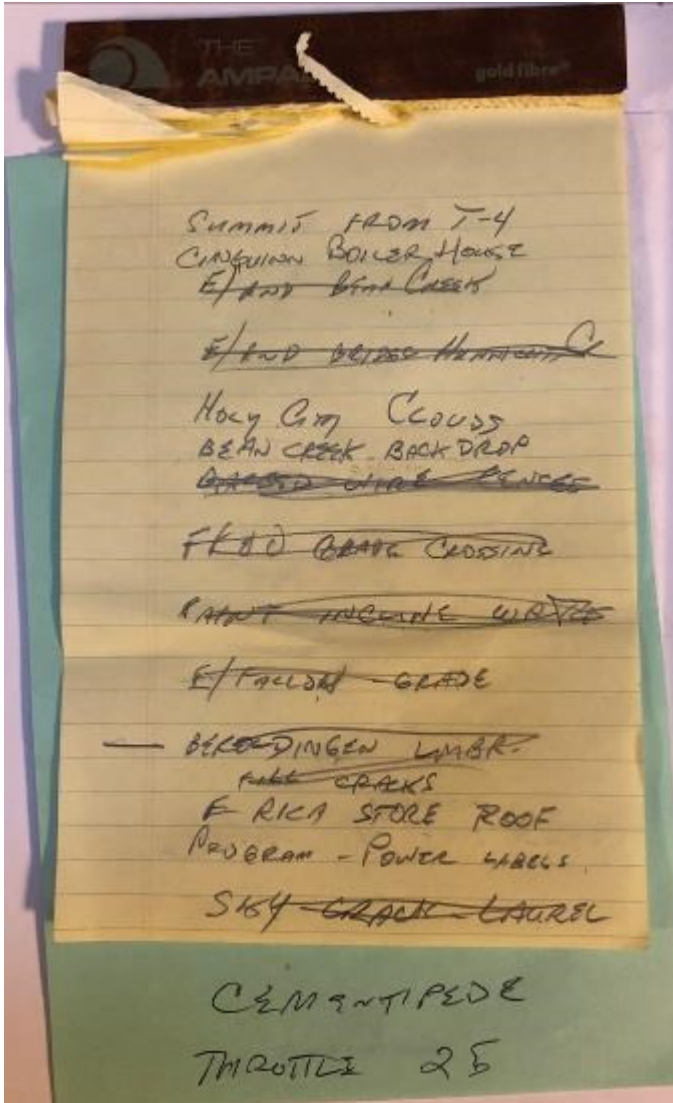 THE
AMPAD
gold fibre
SUMMIT FROM T-4
BOILER HOUSE
E/ AND BEAN CREEK
E/ AND BRIDGE
HOLY CITY CLOUDS
BEAN CREEK BACKDROP
BARBED WIRE FENCES
GRADE CROSSING
PAINT INCLINE
E/ FALLON - GRADE
BEROLDINGEN LMBR.
FILL CRACKS
RICA STORE ROOF
PROGRAM - POWER LABELS
SKY CRACK - LAUREL
CEMENTIPEDE
THROTTLE 25